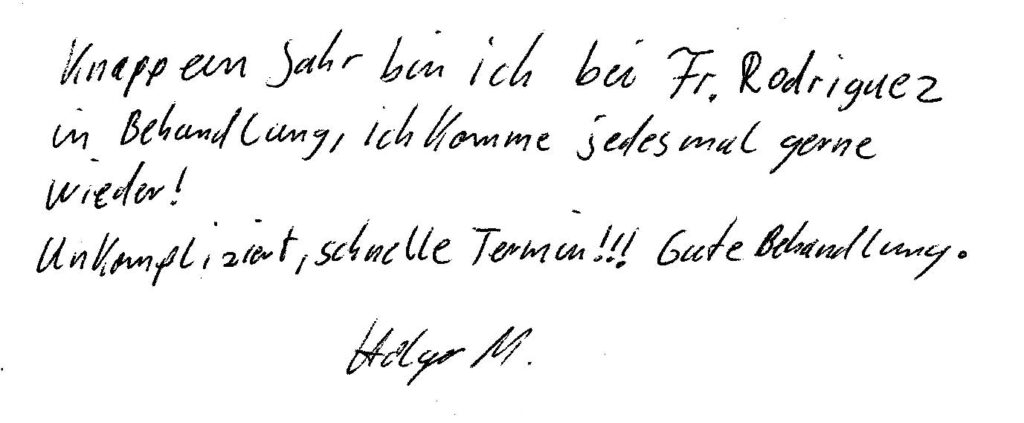 Knapp ein Jahr bin ich bei Fr. Rodriguez
in Behandlung, ich komme jedesmal gerne
wieder!
Unkompliziert, schnelle Termin!!! Gute Behandlung.
Holger M.